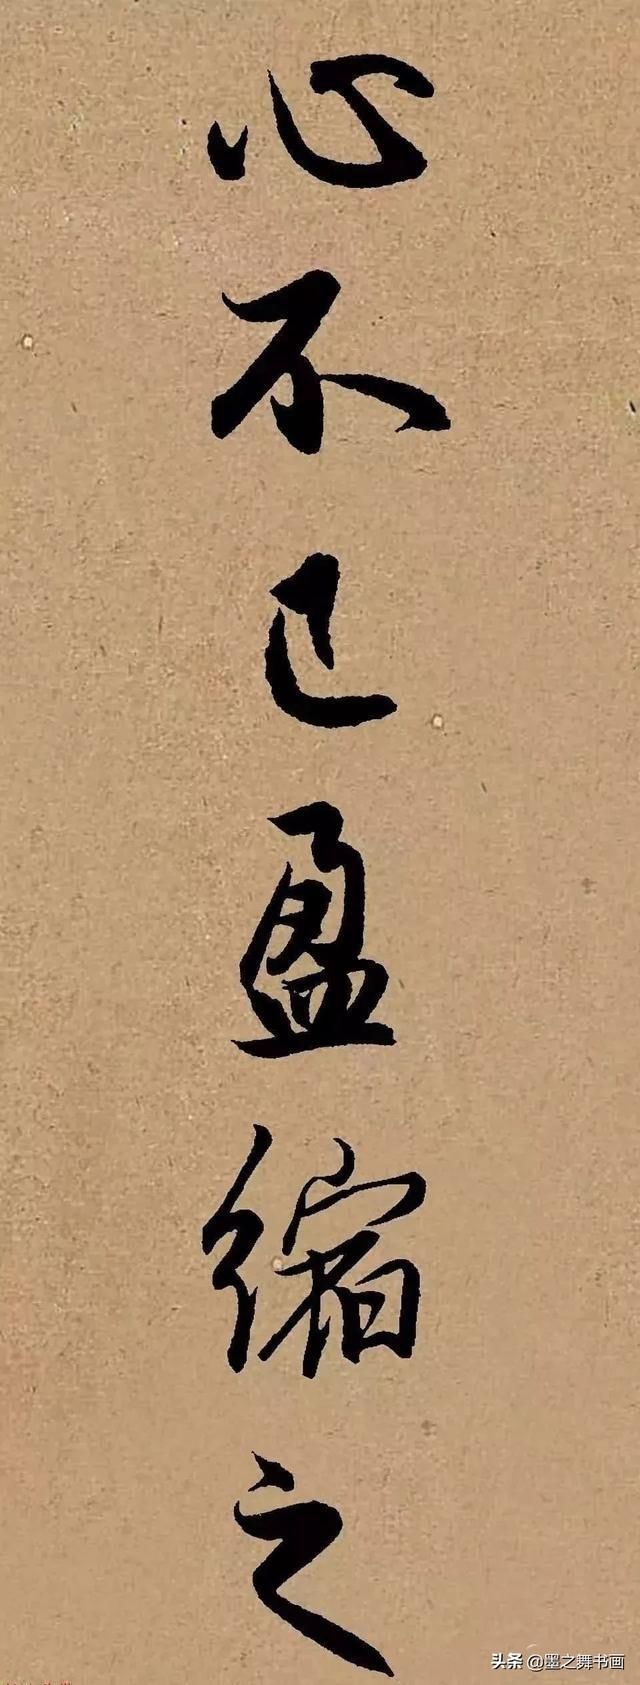 心不已盈缩之
头条 @墨之舞书画